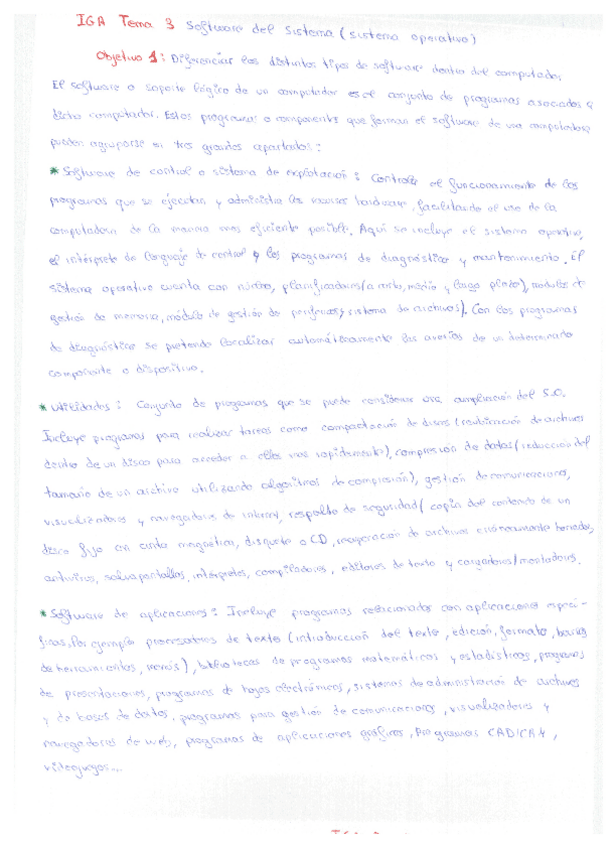 IGA Tema 3 Software del Sistema (sistema operativo)
Objetivo 1: Diferenciar los distintos tipos de software dentro del computador
El software o soporte lógico de un computador es el conjunto de programas asociados a
dicho computador. Estos programas o componentes que forman el software de una computadora
pueden agruparse en tres grandes apartados:
* Software de control o sistema de explotación: Controla el funcionamiento de los
programas que se ejecutan y administra los recursos hardware, facilitando el uso de la
computadora de la manera mas eficiente posible. Aquí se incluye el sistema operativo,
el intérprete de lenguaje de control y los programas de diagnóstico y mantenimiento. El
sistema operativo cuenta con núcleo, planificadores (a corto, medio y largo plazo), modulos de
gestión de memoria, módulo de gestión de perifericos y sistema de archivos). Con los programas
de diagnóstico se pretende localizar automáticamente las averías de un determinado
componente o dispositivo.
* Utilidades: Conjunto de programas que se puede considerar una ampliación del S.O.
Incluye programas para realizar tareas como compactación de discos (reubicación de archivos
dentro de un disco para acceder a ellos mas rapidamente), compresión de datos (reducción del
tamaño de un archivo utilizando algoritmos de compresión), gestión de comunicaciones,
visualizadores y navegadores de internet, respaldo de seguridad (copia del contenido de un
disco fijo en cinta magnética, disquete o CD, recuperación de archivos erróneamente borrados,
antivirus, salvapantallas, intérpretes, compiladores, editores de texto y cargadores/montadores.
* Software de aplicaciones: Incluye programas relacionados con aplicaciones especí-
ficas, Por ejemplo procesadores de texto (introducción del texto, edición, formato, barras
de herramientas, menús), bibliotecas de programas matemáticos y estadísticos, programas
de presentaciones, programas de hojas electrónicas, sistemas de administración de archivos
y de bases de datos, programas para gestión de comunicaciones, visualizadores y
navegadores de web, programas de aplicaciones gráficas, Programas CAD/CAM,
videojuegos...